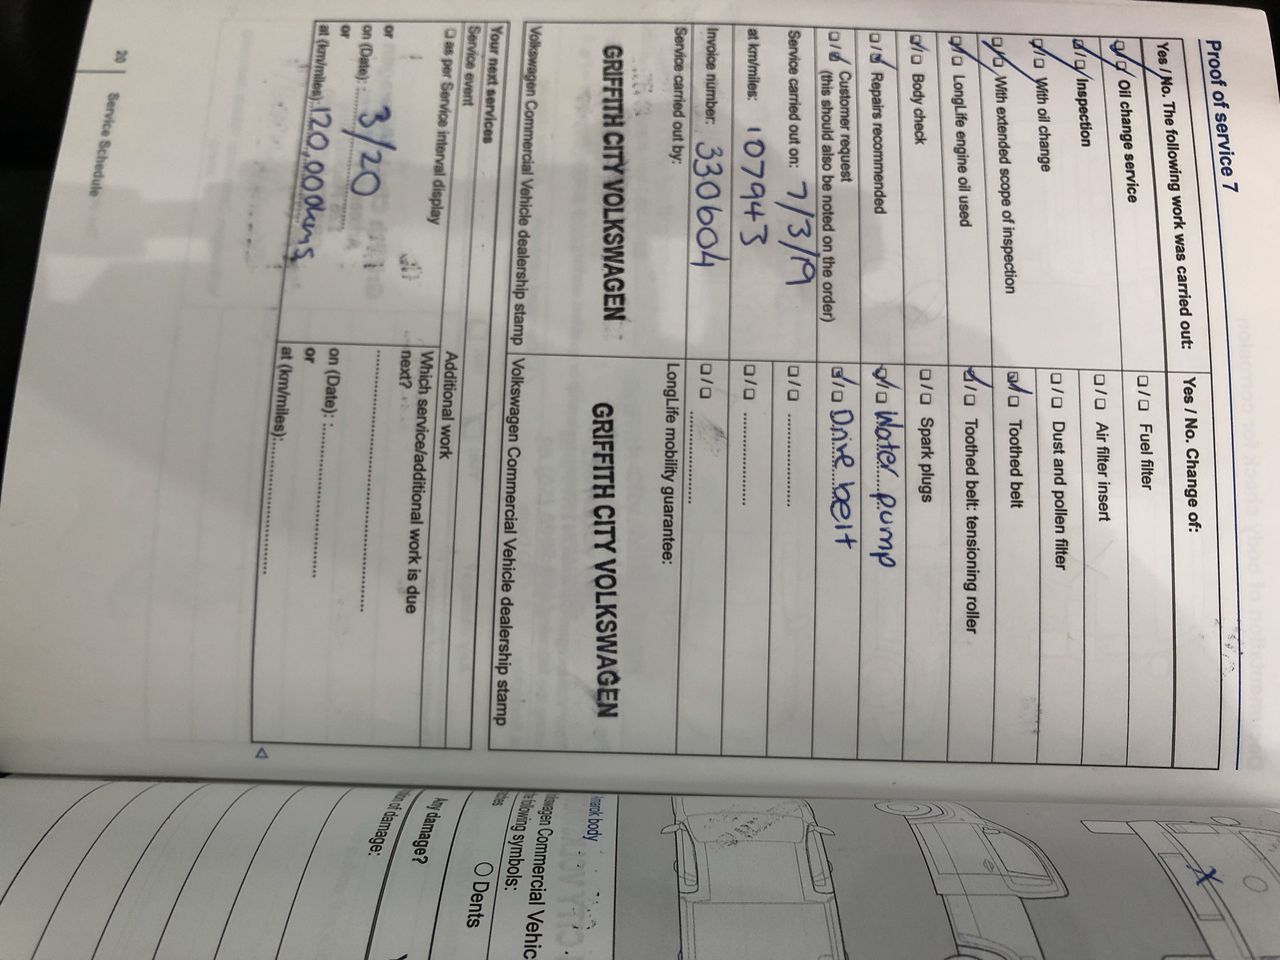 Proof of service 7
Yes / No. The following work was carried out:
Oil change service
Inspection
With oil change
With extended scope of inspection
LongLife engine oil used
Body check
Repairs recommended
Customer request
(this should also be noted on the order)
Service carried out on: 7/3/19
at km/miles: 107943
Invoice number: 330604
Service carried out by:
GRIFFITH CITY VOLKSWAGEN
Volkswagen Commercial Vehicle dealership stamp
Yes / No. Change of:
Fuel filter
Air filter insert
Dust and pollen filter
Toothed belt
Toothed belt: tensioning roller
Spark plugs
Water pump
Drive belt
LongLife mobility guarantee:
GRIFFITH CITY VOLKSWAGEN
Volkswagen Commercial Vehicle dealership stamp
Your next services
Service event
as per Service interval display
or
on (Date): 3/20
or
at (km/miles): 120,000kms
Additional work
Which service/additional work is due
next?
on (Date):
or
at (km/miles):
20 Service Schedule
body
Commercial Vehic
following symbols:
Dents
Any damage?
of damage:
X